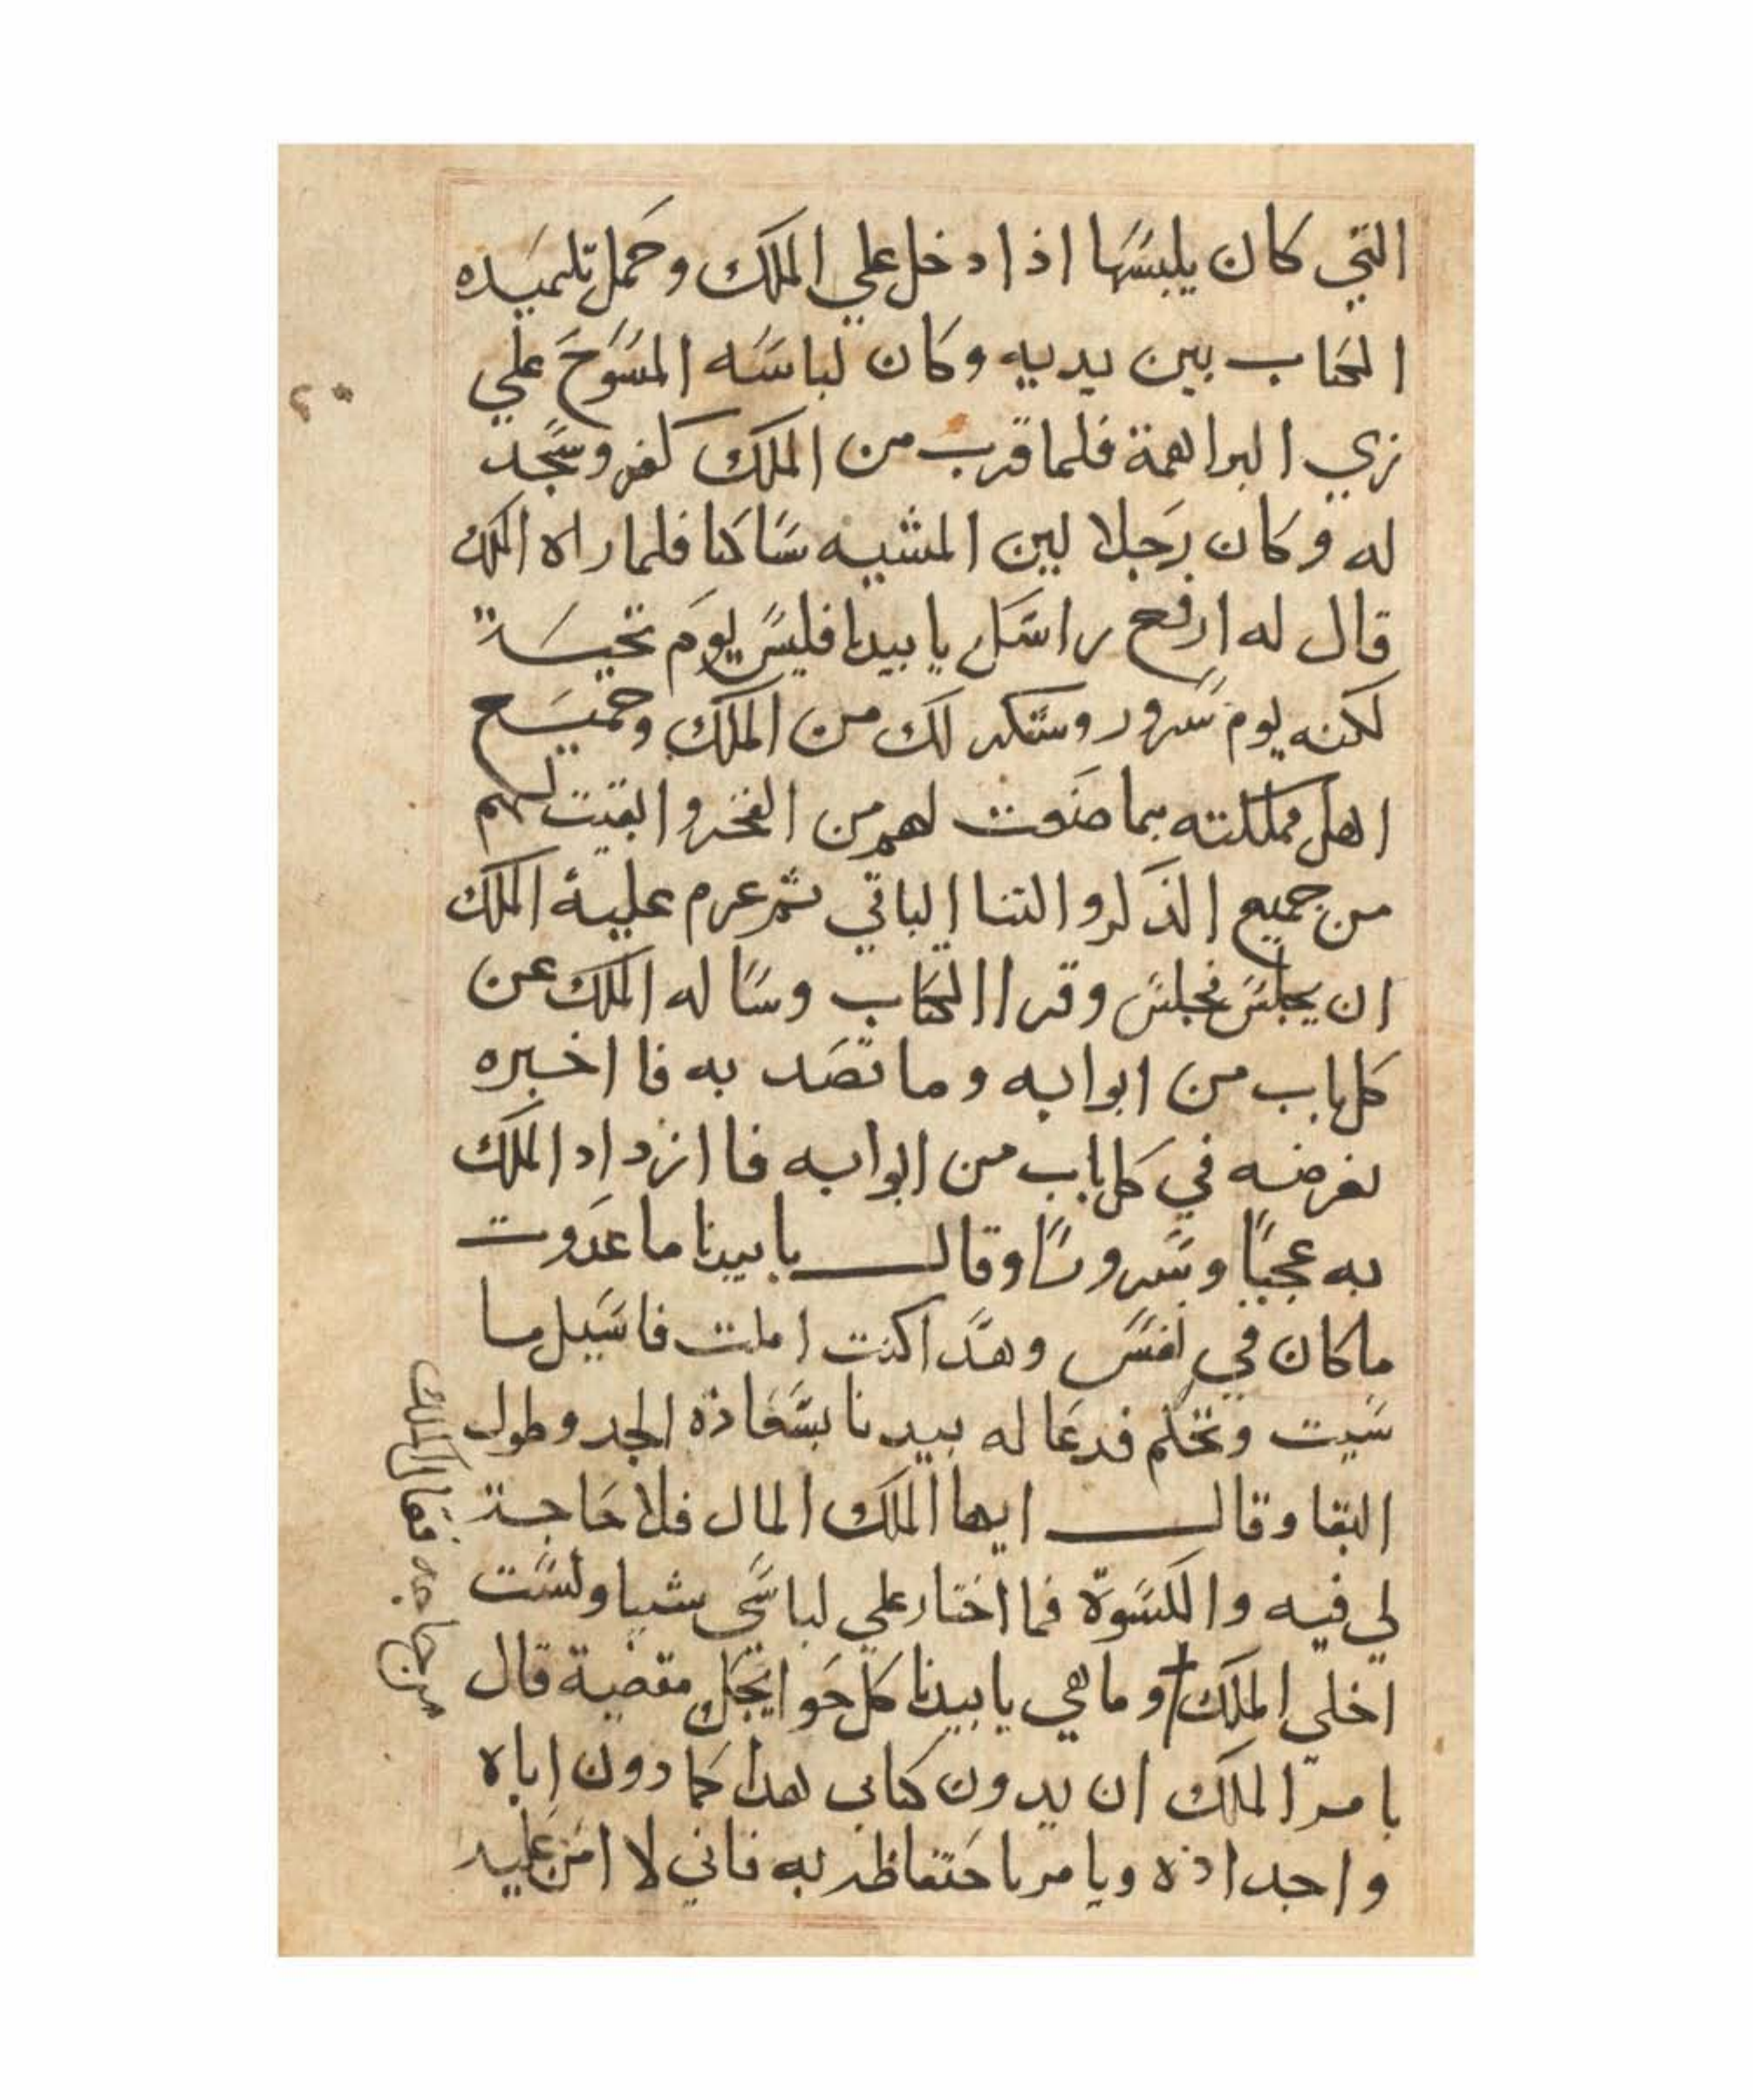 التي كان يلبسها اذا دخل علي الملك وحمل تلميده
الكتاب بين يديه وكان لباسه المسوح علي
زي البراهمة فلما قرب من الملك كفر وسجد
له وكان رجلا لين المشيه ساكنا فلما راه الملك
قال له ارفع راسك يا بيدبا فليس يوم تحيسة
لكنه يوم سرور وستكر لك من الملك وجميع
اهل مملكته بما صنعت لهم من الفخر وابقيت لهم
من جميع الذكر والتنا الباقي ثم عرم عليه الملك
ان يجلس فجلس وقرا الكتاب وساله الملك عن
كل باب من ابوابه وما تصد به فا اخبره
بغرضه في كل باب من ابوابه فا ازداد الملك
به عجبًا وسرورًا وقال يا بيدبا ما عدوت
ما كان في نفسي وهدا كنت املت فاسيل ما
سيت وتحكم فدعا له بيدبا بسعادة الجد وطول
البقا وقال ايها الملك المال فلا حاجة
لي فيه والكسوة فما اختار علي لباسي شيا ولست
اخلي الملك وما هي يا بيدبا كل حوايجك مقضية قال
يا مر الملك ان يدون كتابي هدا كما دون اباه
واجداده ويا مر باحتفاظه به فاني لا امن عليه
من حاجه فقال الملك